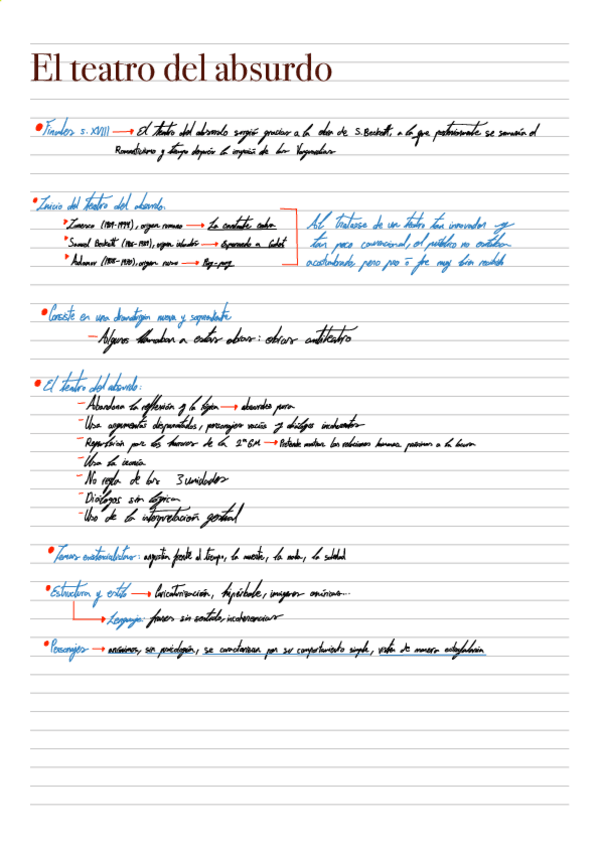 El teatro del absurdo
Finales s. XVIII → El teatro del absurdo surgió gracias a la obra de S. Beckett, a la que posteriormente se sumarían el
Romanticismo y tiempo después la de las Vanguardias
Inicio del teatro del absurdo:
Ionesco (1909-1994), origen rumano → La cantante calva
Samuel Beckett (1906-1989), origen irlandés → Esperando a Godot
Adamov (1908-1970), origen ruso → Ping-pong
Al tratarse de un teatro tan innovador y
tan poco convencional, el público no estaba
acostumbrado pero fue muy bien recibido
Consiste en una dramaturgia nueva y sorprendente
- Algunos llamaban a estas obras: obras antiteatro
El teatro del absurdo:
- Abandona la reflexión y la lógica → absurdo puro
- Usa argumentos disparatados, personajes vacíos y diálogos incoherentes
- Repercusión por los horrores de la 2ª GM → Pretende mostrar las relaciones humanas próximas a la locura
- Usa la ironía
- No regla de las 3 unidades
- Diálogos sin lógica
- Uso de la interpretación gestual
Temas existencialistas: angustia frente al tiempo, la muerte, la nada, la soledad
Estructura y estilo → Caricaturización, hipérbole, imágenes oníricas...
→ Lenguaje: frases sin sentido, incoherencias
Personajes → anónimos, sin psicología, se caracterizan por su comportamiento simple, visten de manera estrafalaria